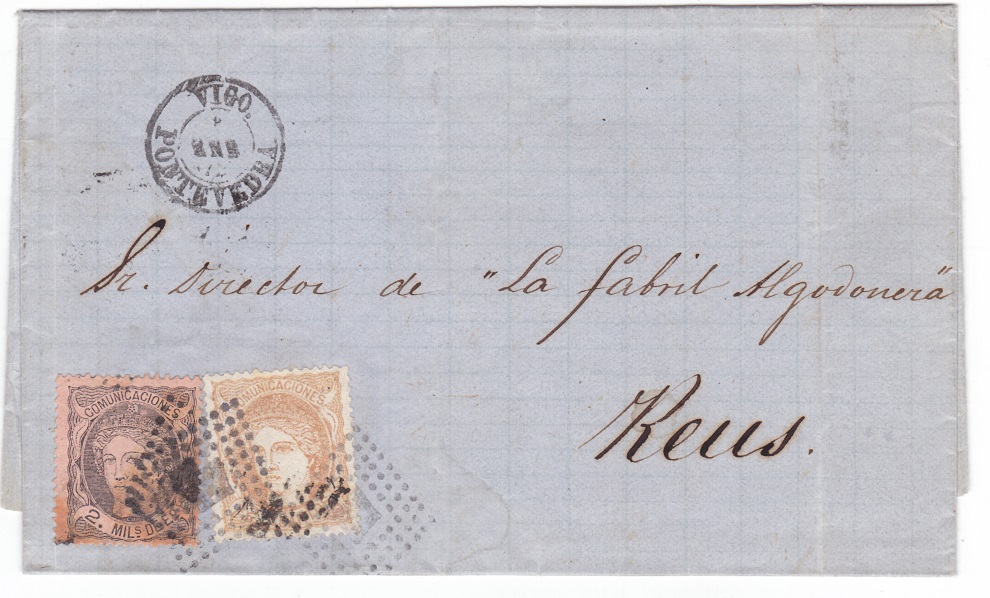 VIGO.
ENE
PONTEVEDRA
Sr. Director de "La fabril Algodonera"
Reus.
COMUNICACIONES
2. MILS DE
COMUNICACIONES